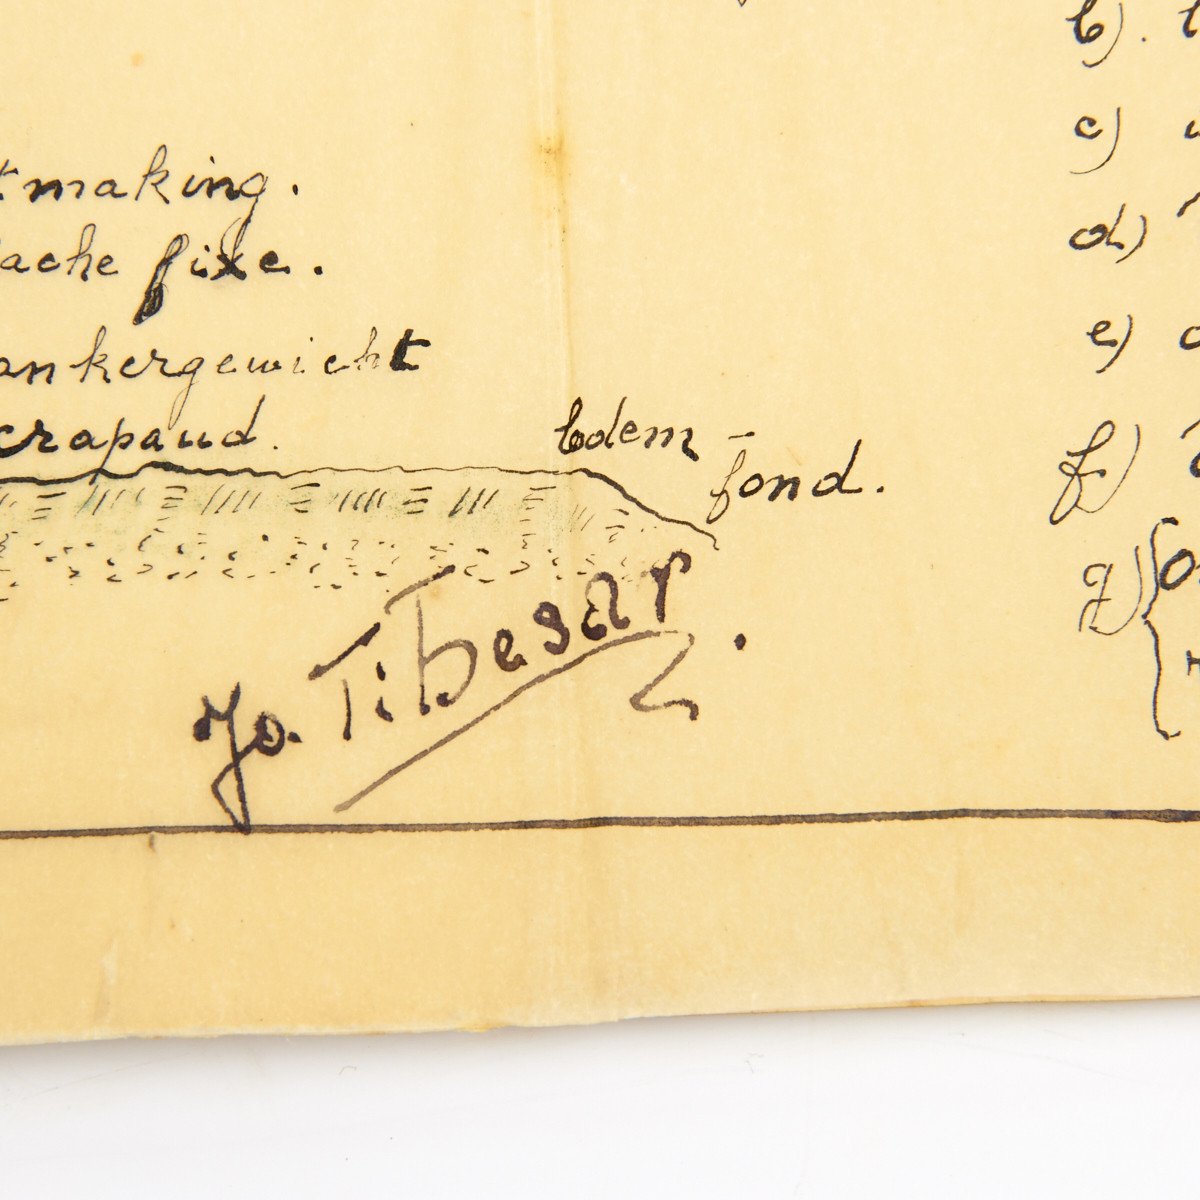 tmaking.
ache fixe.
ankergewicht
crapaud.
bodem - fond.
Jo. Tibesar.
b).
c)
d)
e)
f)
g)